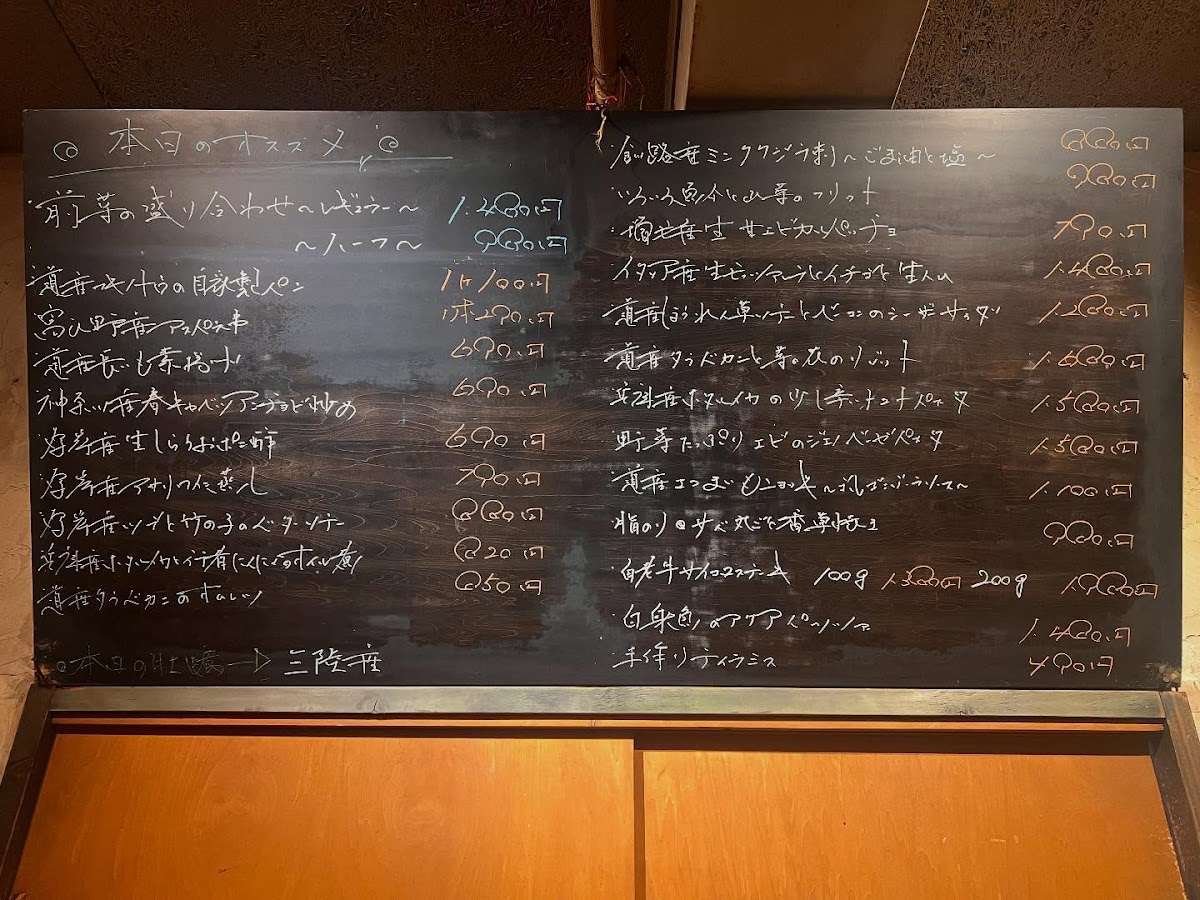 本日のオススメ
前菜の盛り合わせ〜レギュラー〜 1.480円
〜ハーフ〜 980円
道産ユキノトウの自家製パン 1ケ100円
富良野産アスパラ串 1本290円
道産長いも素揚げ 690円
神奈川産春キャベツアンチョビ炒め 690円
厚岸産生しらうおポン酢 690円
厚岸産アサリワイン蒸し 790円
厚岸産ツブと竹の子のバターソテー 880円
兵庫産ホタルイカと行者にんにくのオイル煮 820円
道産タラバガニのオムレツ 850円
本日の牡蠣→三陸産
釧路産ミンククジラ刺〜ごま油と塩〜 880円
いろいろ魚介と山菜のフリット 980円
増毛産生甘エビカルパッチョ 790円
イタリア産生モッツァレラとイチゴと生ハム 1.480円
道産ほうれん草ソテーとベーコンのシーザーサラダ 1.280円
道産タラバガニと春菊のリゾット 1.680円
兵庫産ホタルイカの少し辛いトマトパスタ 1.580円
野菜たっぷりエビのジェノベーゼパスタ 1.580円
道産じゃがいものニョッキ〜ゴルゴンゾーラソース〜 1.100円
脂のり◎サバ丸ごと香草焼き 980円
白老牛サイコロステーキ 100g 1.380円 200g 1.980円
白身魚のアクアパッツァ 1.480円
手作りティラミス 490円